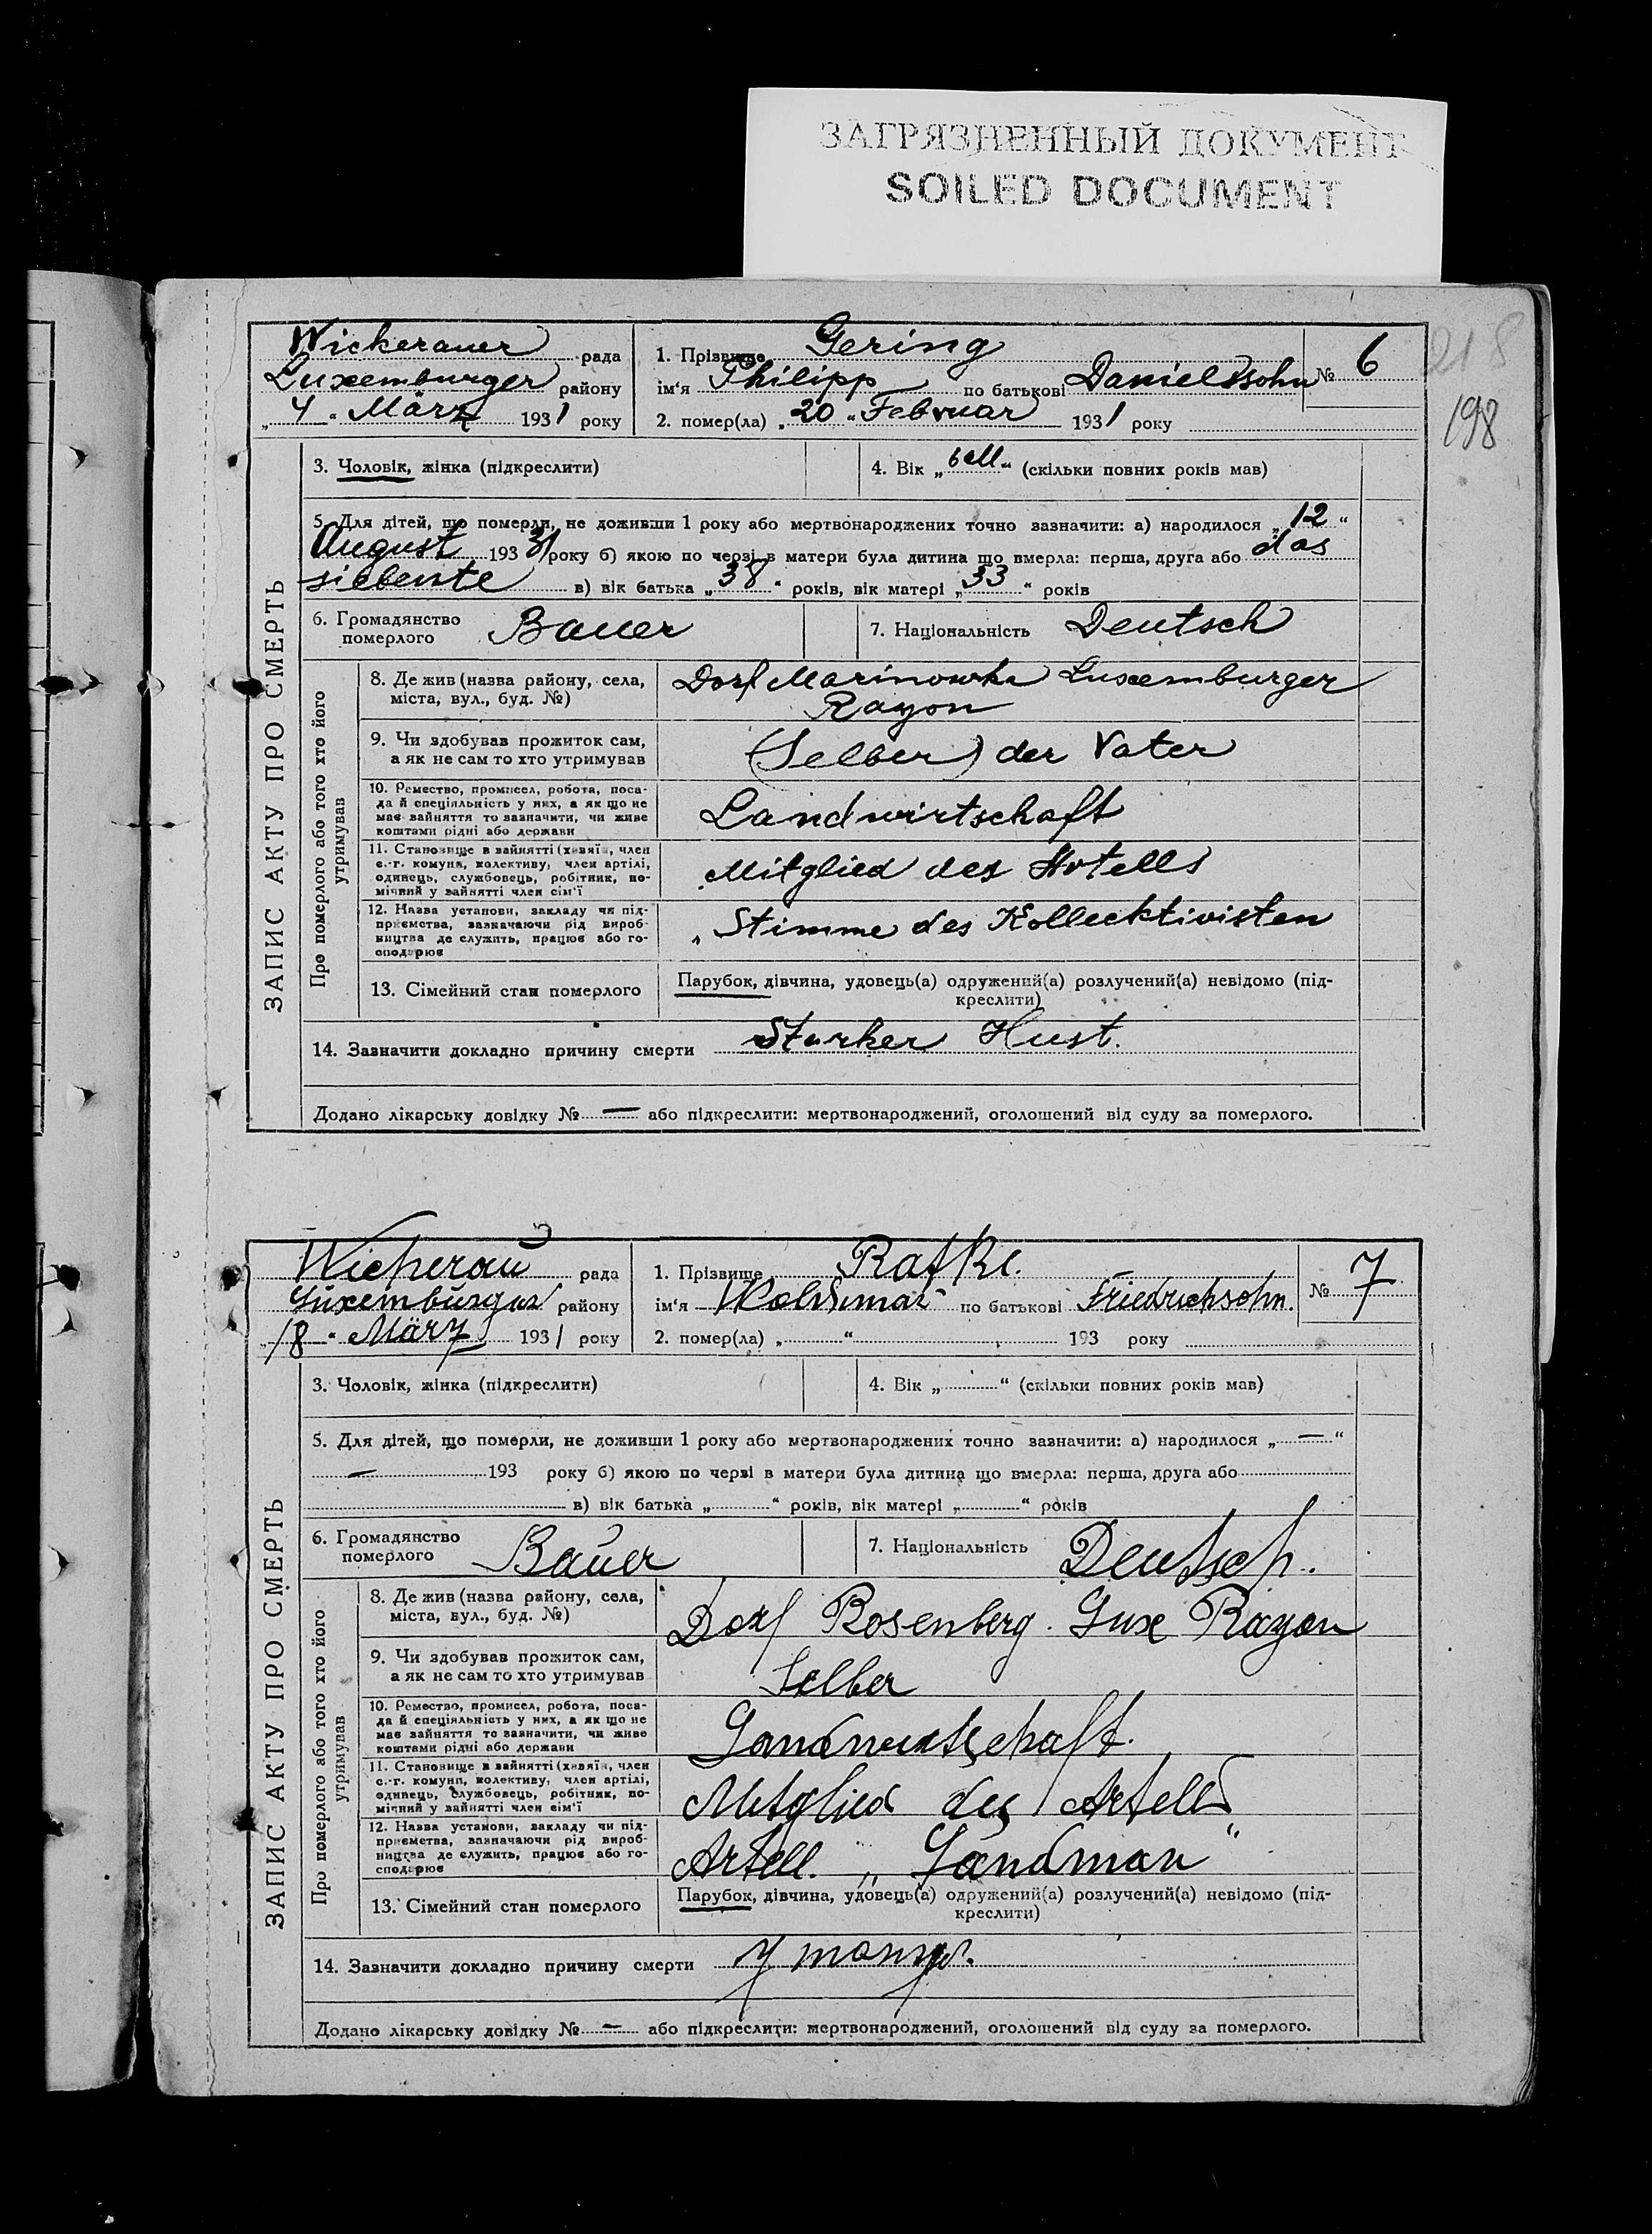 ЗАГРЯЗНЕННЫЙ ДОКУМЕНТ
SOILED DOCUMENT
218
198
ЗАПИС АКТУ ПРО СМЕРТЬ
Wickerauer рада
Luxemburger району
„ 4 “ März 1931 року
1. Прізвище Gering
ім‘я Philipp по батькові Danielssohn № 6
2. помер(ла) „ 20 “ Februar 1931 року
3. Чоловік, жінка (підкреслити)
4. Вік „ 6 M “ (скільки повних років мав)
5. Для дітей, що померли, не доживши 1 року або мертвонароджених точно зазначити: а) народилося „ 12 “
August 193 року б) якою по черзі в матери була дитина що вмерла: перша, друга або das
siebente в) вік батька „ 38 “ років, вік матері „ 33 “ років
6. Громадянство
померлого Bauer
7. Національність Deutsch
Про померлого або того хто його
утримував
8. Де жив (назва району, села,
міста, вул., буд. №)
Dorf Marinowka Luxemburger
Rayon
9. Чи здобував прожиток сам,
а як не сам то хто утримував
(Selber) der Vater
10. Ремество, промисел, робота, поса-
да й спеціяльність у них, а як що не
має зайняття то зазначити, чи живе
коштами рідні або держави
Landwirtschaft
11. Становище в зайнятті (хазяїн, член
с.-г. комуни, колективу, член артілі,
одинець, службовець, робітник, по-
мічний у зайнятті член сім'ї
Mitglied des Artells
12. Назва установи, закладу чи під-
приємства, зазначаючи рід вироб-
ництва де служить, працює або го-
сподарює
„ Stimme des Kollecktivisten
13. Сімейний стан померлого
Парубок, дівчина, удовець(а) одружений(а) розлучений(а) невідомо (під-
креслити)
14. Зазначити докладно причину смерти Starker Hust.
Додано лікарську довідку № — або підкреслити: мертвонароджений, оголошений від суду за померлого.
ЗАПИС АКТУ ПРО СМЕРТЬ
Wickerau рада
Luxemburger району
„ 18 “ März 1931 року
1. Прізвище Ratke.
ім‘я Woldemar по батькові Friedrichsohn. № 7
2. помер(ла) „ “ 193 року
3. Чоловік, жінка (підкреслити)
4. Вік „ “ (скільки повних років мав)
5. Для дітей, що померли, не доживши 1 року або мертвонароджених точно зазначити: а) народилося „ — “
— 193 року б) якою по черзі в матери була дитина що вмерла: перша, друга або
в) вік батька „ “ років, вік матері „ “ років
6. Громадянство
померлого Bauer
7. Національність Deutsch.
Про померлого або того хто його
утримував
8. Де жив (назва району, села,
міста, вул., буд. №)
Dorf Rosenberg. Lux Rayon
9. Чи здобував прожиток сам,
а як не сам то хто утримував
Selber
10. Ремество, промисел, робота, поса-
да й спеціяльність у них, а як що не
має зайняття то зазначити, чи живе
коштами рідні або держави
Landwirtschaft.
11. Становище в зайнятті (хазяїн, член
с.-г. комуни, колективу, член артілі,
одинець, службовець, робітник, по-
мічний у зайнятті член сім'ї
Mitglied des Artells
12. Назва установи, закладу чи під-
приємства, зазначаючи рід вироб-
ництва де служить, працює або го-
сподарює
Artell. „ Landman “
13. Сімейний стан померлого
Парубок, дівчина, удовець(а) одружений(а) розлучений(а) невідомо (під-
креслити)
14. Зазначити докладно причину смерти
Додано лікарську довідку № — або підкреслити: мертвонароджений, оголошений від суду за померлого.